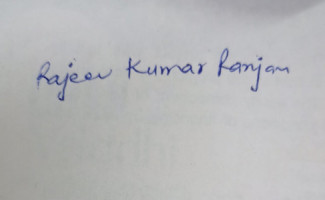 Rajeev Kumar Ranjan